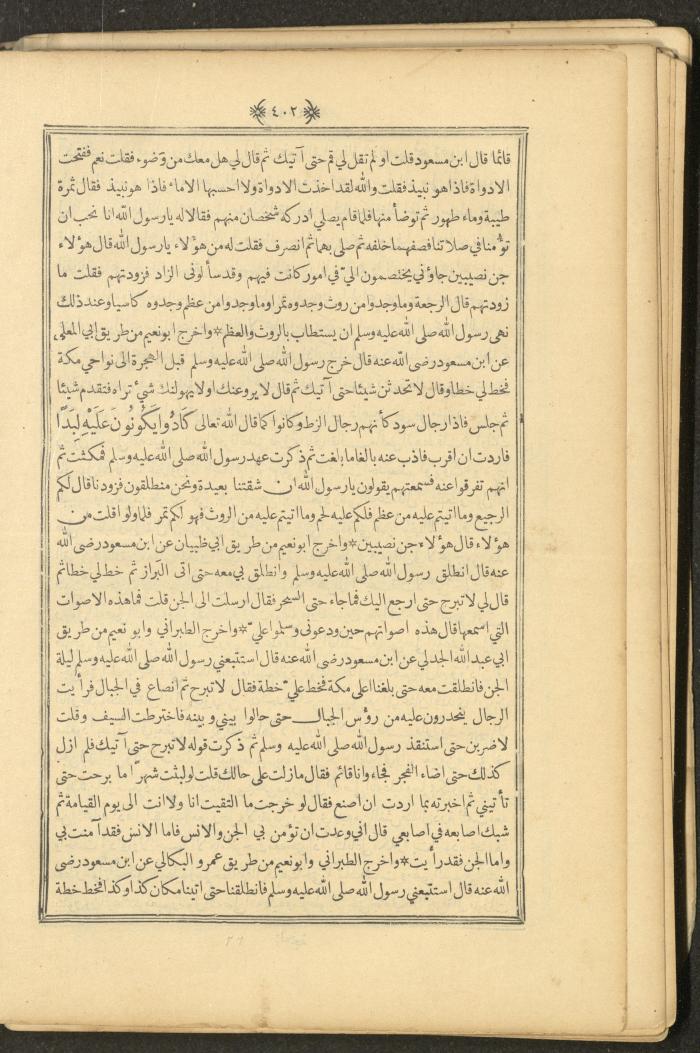 ٤٠٢
قائما قال ابن مسعود قلت اولم تقل لي قم حتى آتيك ثم قال لي هل معك من وضوء فقلت نعم ففتحت
الادواة فاذا هو نبيذ فقلت والله لقد اخذت الادواة ولا احسبها الاماء فاذا هو نبيذ فقال ثمرة
طيبة وماء طهور ثم توضأ منها فلما قام يصلي ادركه شخصان منهم فقالا له يارسول الله انا نحب ان
تؤمنا في صلاتنا فصفهما خلفه ثم صلى بهما ثم انصرف فقلت له من هؤلاء يارسول الله قال هؤلاء
جن نصيبين جاؤني يختصمون الي في امور كانت فيهم وقد سألوني الزاد فزودتهم فقلت ما
زودتهم قال الرجعة وما وجدوا من روث وجدوه تمرا وما وجدوا من عظم وجدوه كاسيا وعند ذلك
نهى رسول الله صلى الله عليه وسلم ان يستطاب بالروث والعظم * واخرج ابو نعيم من طريق ابي المعلى
عن ابن مسعود رضى الله عنه قال خرج رسول الله صلى الله عليه وسلم قبل الهجرة الى نواحي مكة
فخط لي خطا وقال لا تحدثن شيئا حتى آتيك ثم قال لا يروعنك اولا يهولنك شئ تراه فتقدم شيئا
ثم جلس فاذا رجال سود كأنهم رجال الزط وكانوا كما قال الله تعالى كَادُوا يَكُونُونَ عَلَيْهِ لِبَدًا
فاردت ان اقرب فاذب عنه بالغا ما بلغت ثم ذكرت عهد رسول الله صلى الله عليه وسلم فمكثت ثم
انهم تفرقوا عنه فسمعتهم يقولون يارسول الله ان شقتنا بعيدة ونحن منطلقون فزودنا قال لكم
الرجيع وما اتيتم عليه من عظم فلكم عليه لحم وما اتيتم عليه من الروث فهو لكم تمر فلما ولوا قلت من
هؤلاء قال هؤلاء جن نصيبين * واخرج ابو نعيم من طريق ابي ظبيان عن ابن مسعود رضى الله
عنه قال انطلق رسول الله صلى الله عليه وسلم وانطلق بي معه حتى اتى البراز ثم خط لي خطا ثم
قال لي لا تبرح حتى ارجع اليك فما جاء حتى السحر فقال ارسلت الى الجن قلت فما هذه الاصوات
التي اسمعها قال هذه اصواتهم حين ودعوني وسلموا علي * واخرج الطبراني وابو نعيم من طريق
ابي عبد الله الجدلي عن ابن مسعود رضى الله عنه قال استتبعني رسول الله صلى الله عليه وسلم ليلة
الجن فانطلقت معه حتى بلغنا اعلى مكة فخط علي خطة فقال لا تبرح ثم انصاع في الجبال فرأيت
الرجال ينحدرون عليه من رؤس الجبال حتى حالوا بيني وبينه فاخترطت السيف وقلت
لاضربن حتى استنقذ رسول الله صلى الله عليه وسلم ثم ذكرت قوله لا تبرح حتى آتيك فلم ازل
كذلك حتى اضاء الفجر فجاء وانا قائم فقال مازلت على حالك قلت لو لبثت شهرا ما برحت حتى
تأتيني ثم اخبرته بما اردت ان اصنع فقال لو خرجت ما التقيت انا ولا انت الى يوم القيامة ثم
شبك اصابعه في اصابعي قال اني وعدت ان تؤمن بي الجن والانس فاما الانس فقد آمنت بي
واما الجن فقد رأيت * واخرج الطبراني وابو نعيم من طريق عمرو البكالي عن ابن مسعود رضى
الله عنه قال استتبعني رسول الله صلى الله عليه وسلم فانطلقنا حتى اتينا مكان كذا وكذا فخط خطة